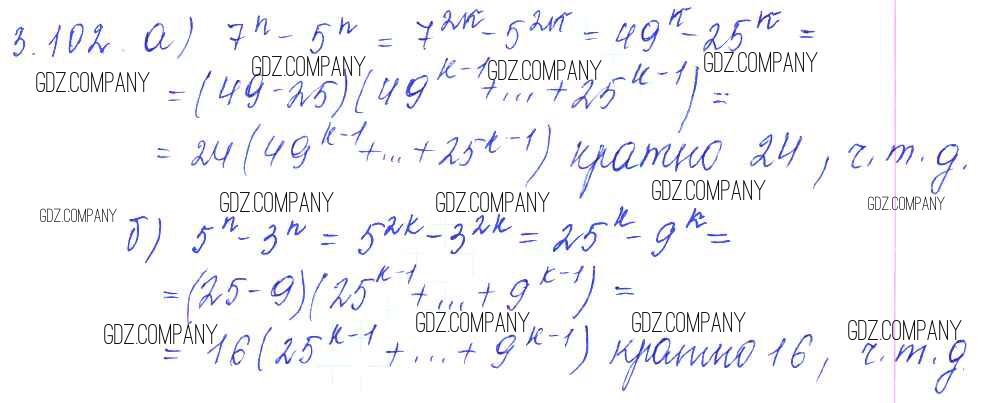 3.102. а) 7^n - 5^n = 7^{2k} - 5^{2k} = 49^k - 25^k =
GDZ.COMPANY GDZ.COMPANY GDZ.COMPANY GDZ.COMPANY
= (49 - 25)(49^{k-1} + ... + 25^{k-1}) =
= 24(49^{k-1} + ... + 25^{k-1}) кратно 24, ч.т.д.
GDZ.COMPANY GDZ.COMPANY GDZ.COMPANY GDZ.COMPANY GDZ.COMPANY
б) 5^n - 3^n = 5^{2k} - 3^{2k} = 25^k - 9^k =
= (25 - 9)(25^{k-1} + ... + 9^{k-1}) =
GDZ.COMPANY GDZ.COMPANY GDZ.COMPANY GDZ.COMPANY
= 16(25^{k-1} + ... + 9^{k-1}) кратно 16, ч.т.д.